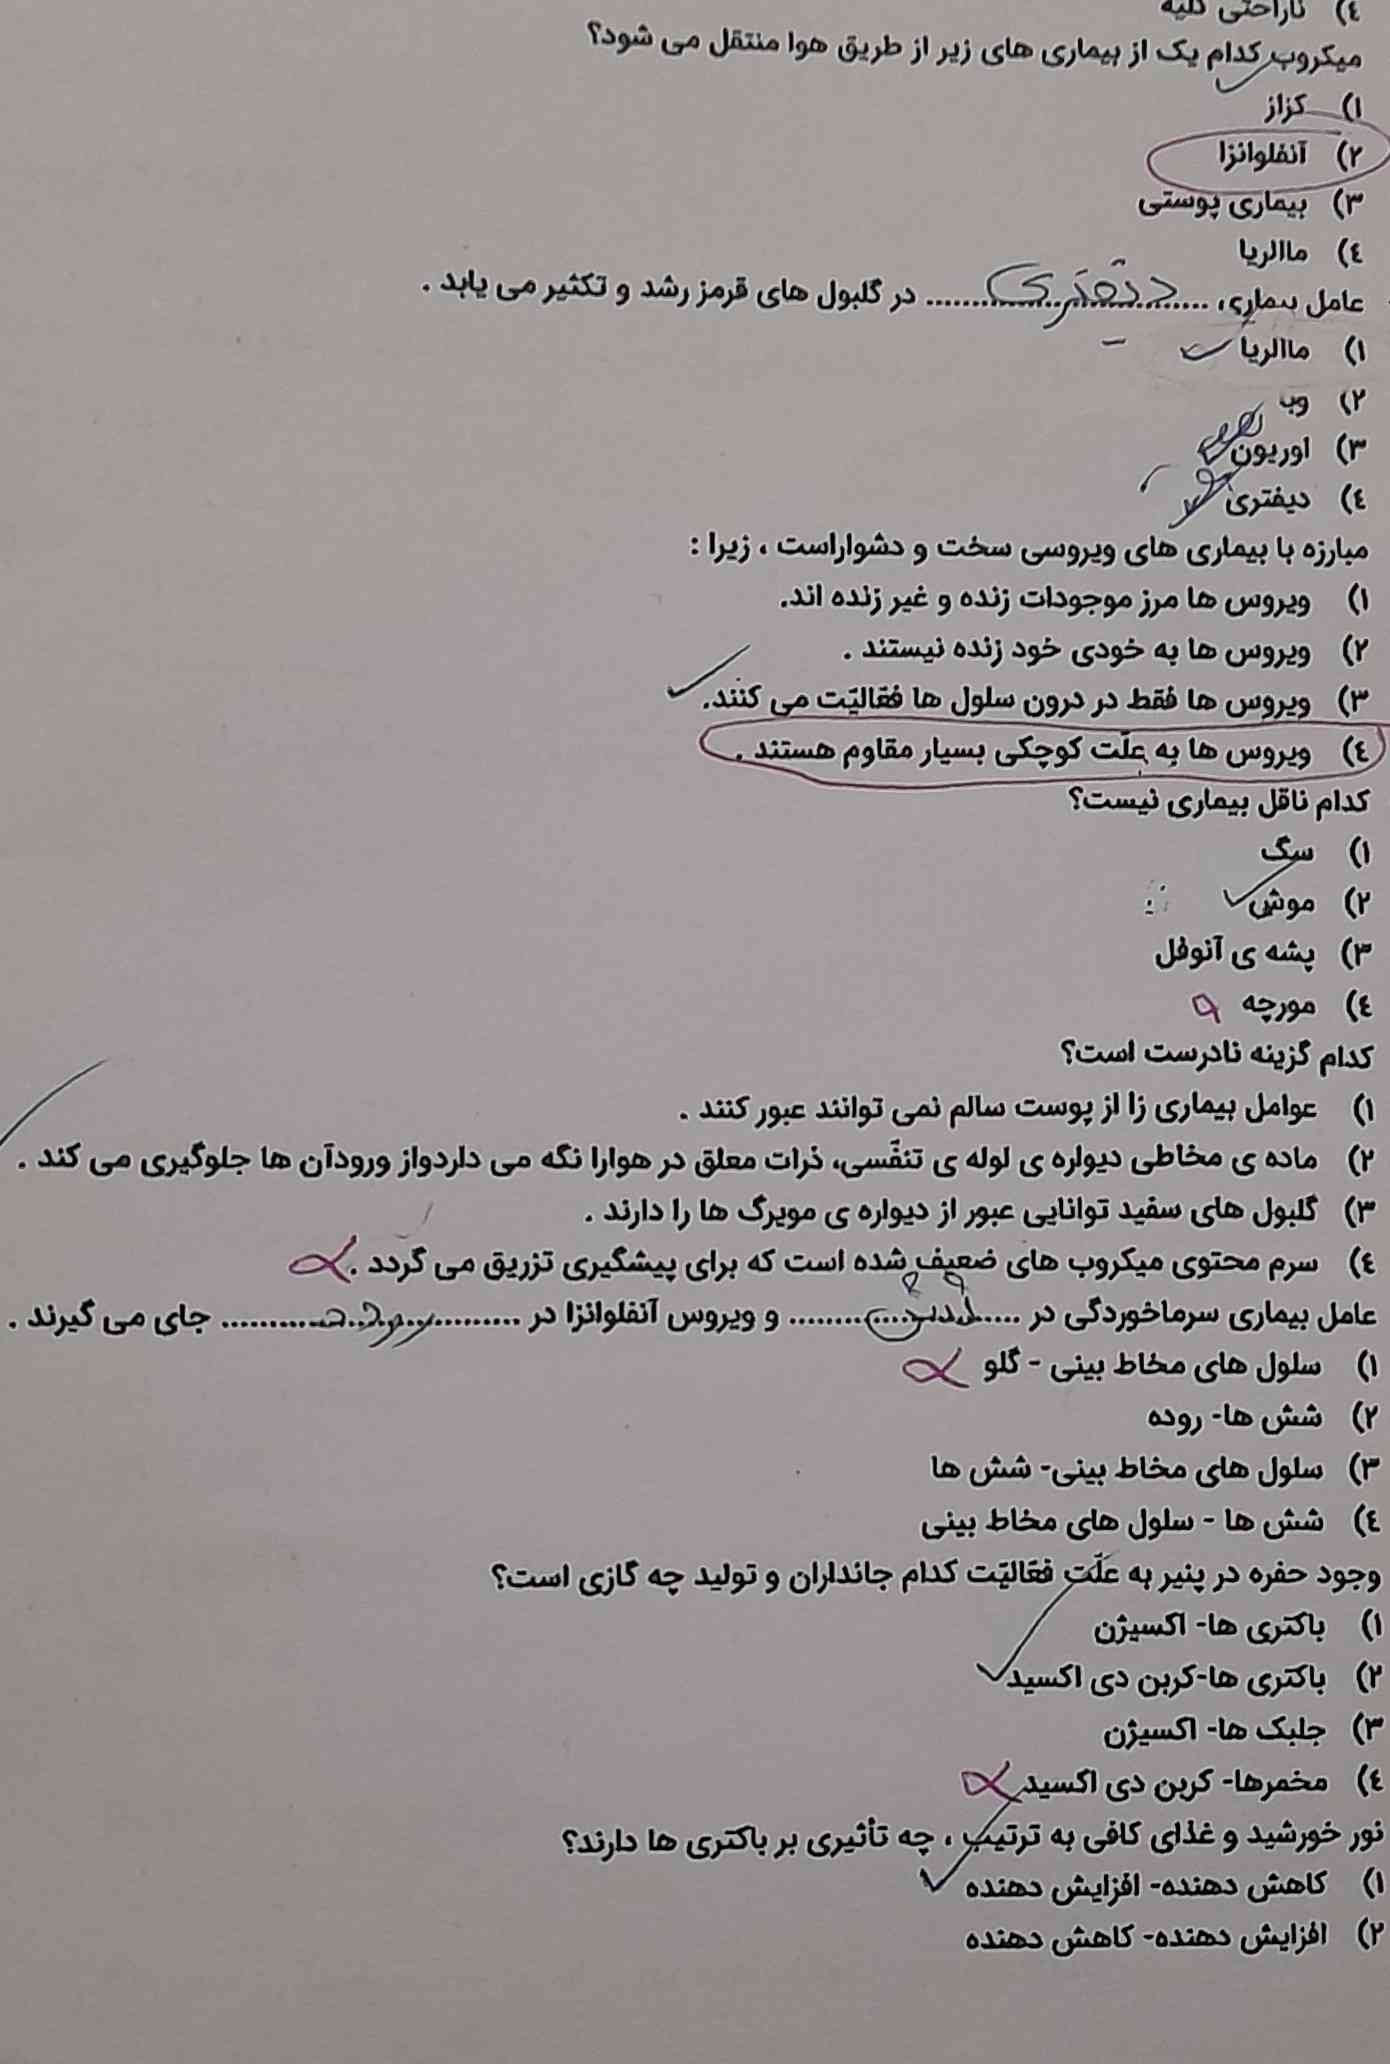 ٤) ناراحتی کلیه
میکروب کدام یک از بیماری های زیر از طریق هوا منتقل می شود؟
۱) کزاز
۲) آنفلوانزا
۳) بیماری پوستی
٤) ماالریا
عامل بیماری، .......... دیفتری .......... در گلبول های قرمز رشد و تکثیر می یابد .
۱) ماالریا
۲) وبا
۳) اوریون
٤) دیفتری
مبارزه با بیماری های ویروسی سخت و دشواراست ، زیرا :
۱) ویروس ها مرز موجودات زنده و غیر زنده اند.
۲) ویروس ها به خودی خود زنده نیستند .
۳) ویروس ها فقط در درون سلول ها فعّالیّت می کنند.
٤) ویروس ها به علّت کوچکی بسیار مقاوم هستند .
کدام ناقل بیماری نیست؟
۱) سگ
۲) موش
۳) پشه ی آنوفل
٤) مورچه
کدام گزینه نادرست است؟
۱) عوامل بیماری زا از پوست سالم نمی توانند عبور کنند .
۲) ماده ی مخاطی دیواره ی لوله ی تنفّسی، ذرات معلق در هوارا نگه می داردواز ورودآن ها جلوگیری می کند .
۳) گلبول های سفید توانایی عبور از دیواره ی مویرگ ها را دارند .
٤) سرم محتوی میکروب های ضعیف شده است که برای پیشگیری تزریق می گردد .
عامل بیماری سرماخوردگی در .................... و ویروس آنفلوانزا در .................... جای می گیرند .
۱) سلول های مخاط بینی - گلو
۲) شش ها- روده
۳) سلول های مخاط بینی- شش ها
٤) شش ها - سلول های مخاط بینی
وجود حفره در پنیر به علّت فعّالیّت کدام جانداران و تولید چه گازی است؟
۱) باکتری ها- اکسیژن
۲) باکتری ها-کربن دی اکسید
۳) جلبک ها- اکسیژن
٤) مخمرها- کربن دی اکسید
نور خورشید و غذای کافی به ترتیب ، چه تأثیری بر باکتری ها دارند؟
۱) کاهش دهنده- افزایش دهنده
۲) افزایش دهنده- کاهش دهنده